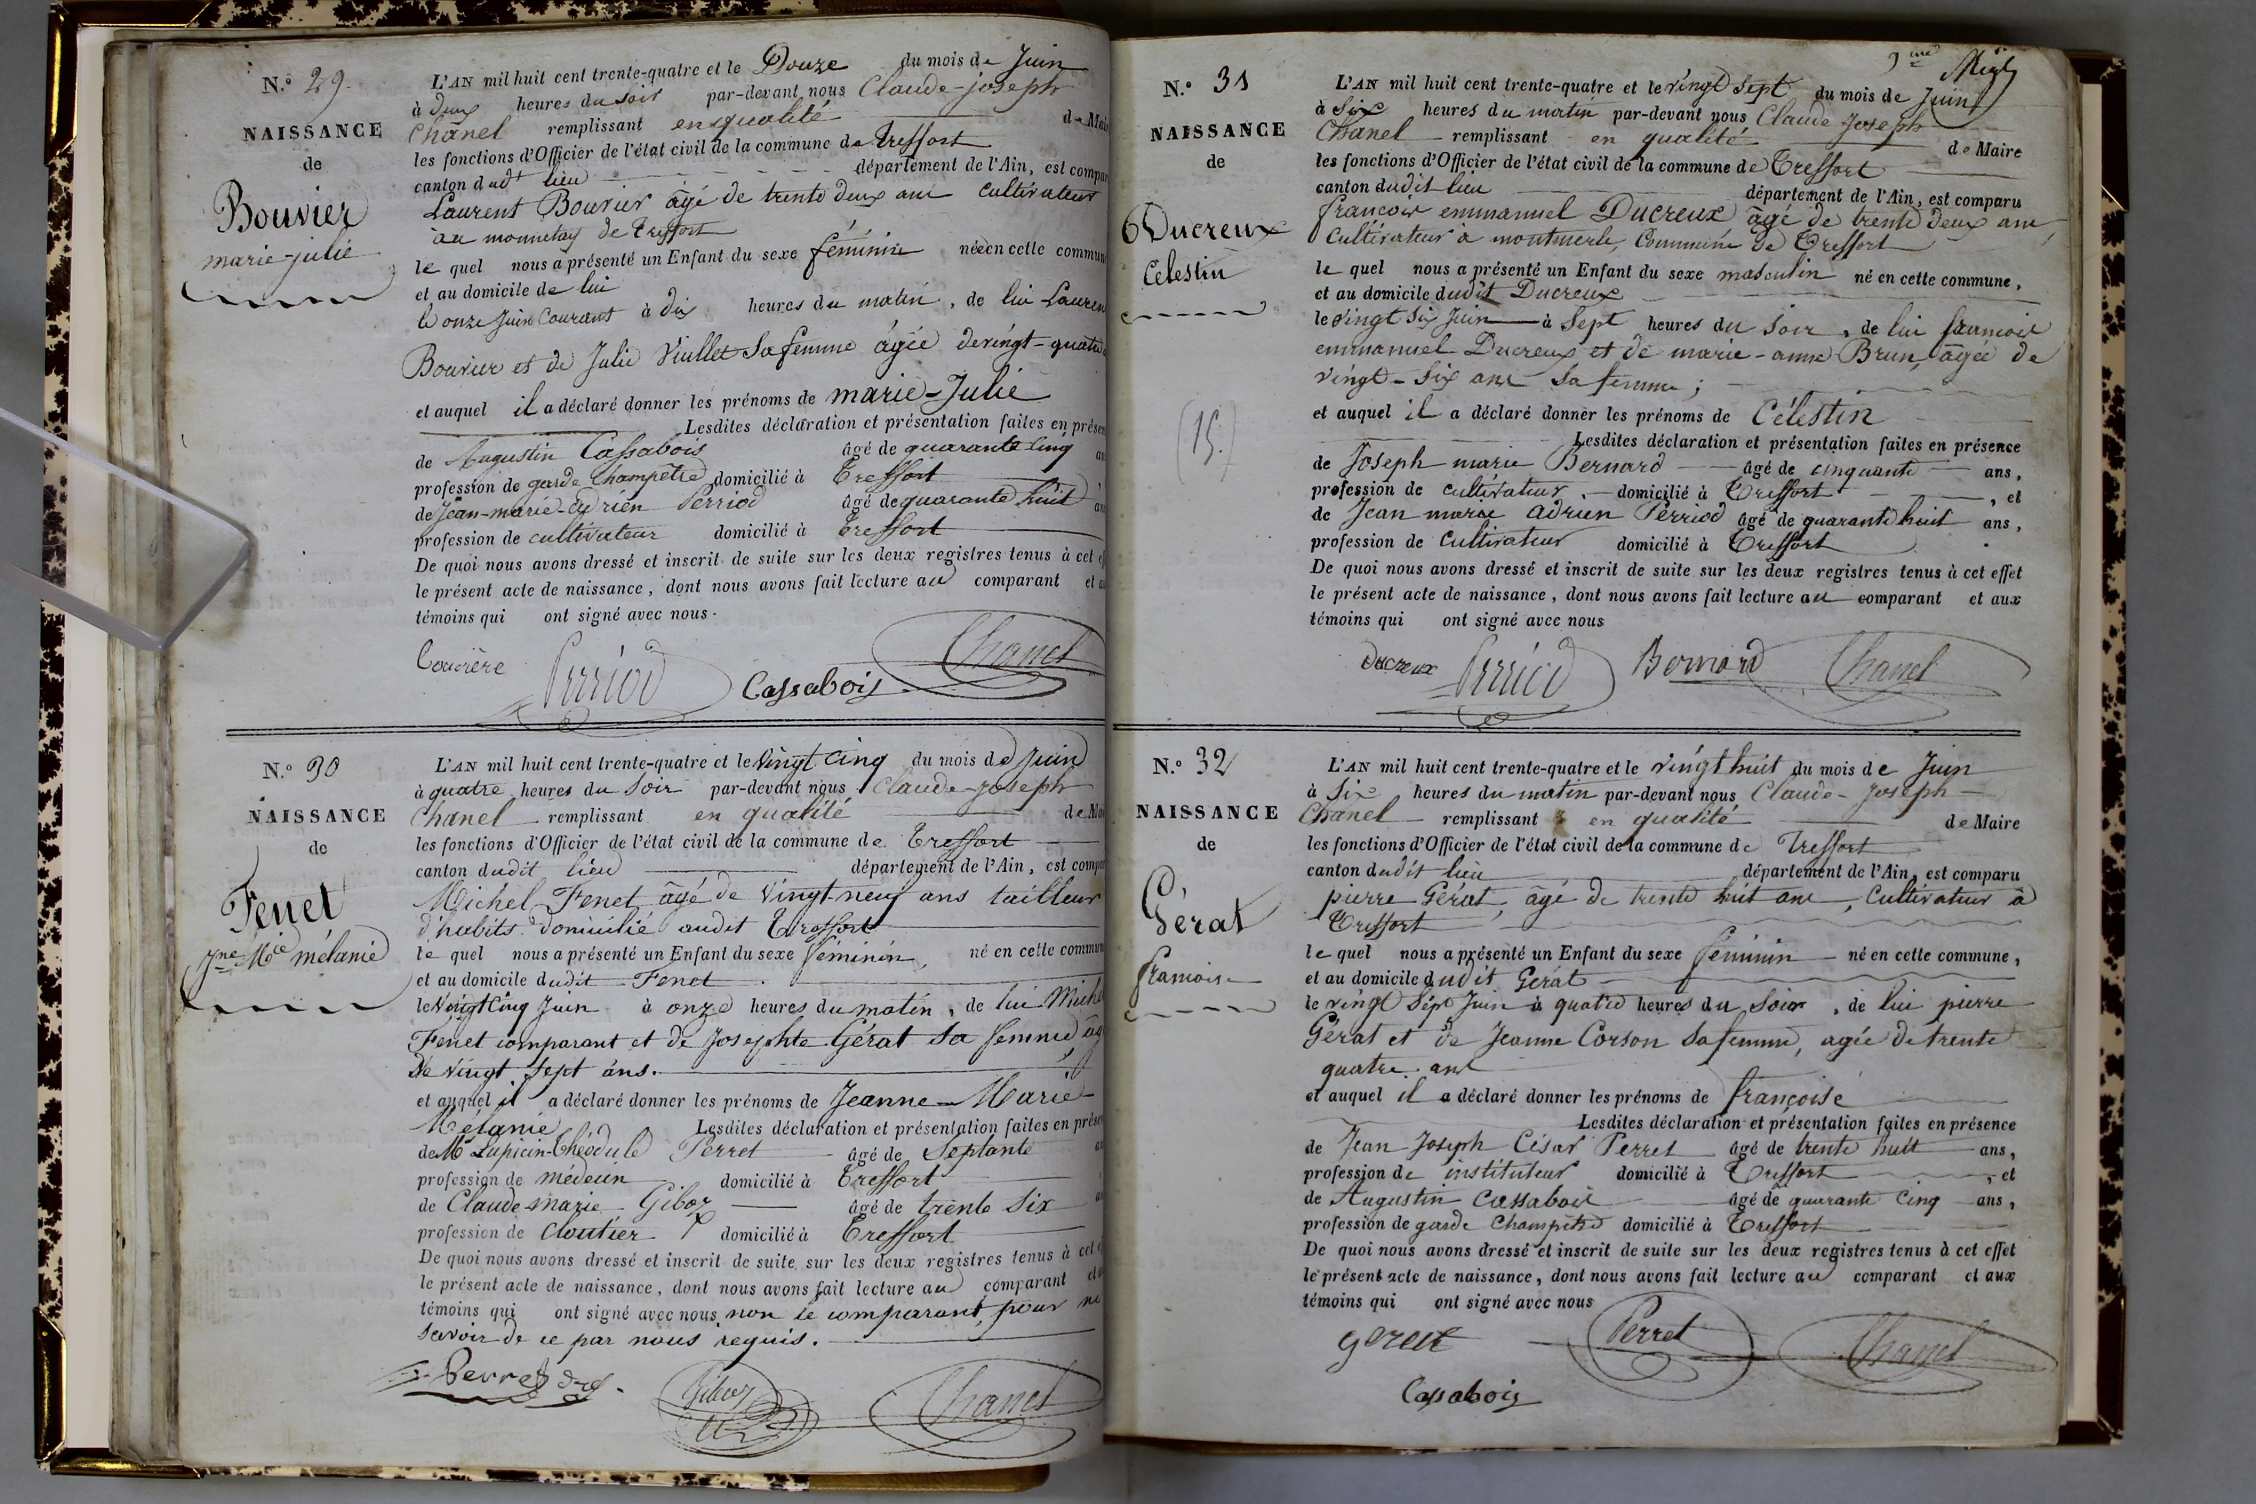 N.º 29.
NAISSANCE
de
Bouvier
marie-julie
L'AN mil huit cent trente-quatre et le Douze du mois de Juin
à deux heures du soir par-devant nous Claude-joseph
Chanel remplissant en qualité de Mai
les fonctions d'Officier de l'état civil de la commune de Treffort
canton dudt lieu département de l'Ain, est compar
Laurent Bouvier âgé de trente deux ans cultivateur
au monnetay de Treffort
le quel nous a présenté un Enfant du sexe féminin née en cette commun
et au domicile de lui
le onze Juin Courant à dix heures du matin, de lui Lauren
Bouvier et de Julie Viallet Sa femme âgée de vingt-quatre
et auquel il a déclaré donner les prénoms de marie-Julie
Lesdites déclaration et présentation faites en présen
de Augustin Cassabois âgé de quarante Cinq an
profession de garde Champêtre domicilié à Treffort
de Jean-marie-adrien Perriod âgé de quarante huit an
profession de cultivateur domicilié à Treffort
De quoi nous avons dressé et inscrit de suite sur les deux registres tenus à cet eff
le présent acte de naissance, dont nous avons fait lecture au comparant et a
témoins qui ont signé avec nous.
Perriod Cassabois Chanel
N.º 30
NAISSANCE
de
Fenet
Jne Mie mélanie
L'AN mil huit cent trente-quatre et le vingt cinq du mois de Juin
à quatre heures du soir par-devant nous Claude-joseph
Chanel remplissant en qualité de Mai
les fonctions d'Officier de l'état civil de la commune de Treffort
canton dudit lieu département de l'Ain, est compar
Michel Fenet âgé de vingt-neuf ans tailleur
d'habits domicilié audit Treffort
le quel nous a présenté un Enfant du sexe féminin, né en cette commun
et au domicile dudit Fenet
le vingt Cinq Juin à onze heures du matin, de lui Miche
Fenet comparant et de Josephte Gérat sa femme âg
de vingt sept ans.
et auquel il a déclaré donner les prénoms de Jeanne-Marie
Mélanie Lesdites déclaration et présentation faites en prése
de Mr Lupicin-Théodule Perret âgé de Septante an
profession de médecin domicilié à Treffort
de Claude marie Giboz âgé de trente six an
profession de Cloutier domicilié à Treffort
De quoi nous avons dressé et inscrit de suite sur les deux registres tenus à cet e
le présent acte de naissance, dont nous avons fait lecture au comparant et a
témoins qui ont signé avec nous non le comparant, pour ne
savoir de ce par nous requis.
Perret Giboz Chanel
N.º 31
NAISSANCE
de
Ducreux
Celestin
(15.)
L'AN mil huit cent trente-quatre et le vingt sept du mois de Juin
à Six heures du matin par-devant nous Claude Joseph
Chanel remplissant en qualité de Maire
les fonctions d'Officier de l'état civil de la commune de Treffort
canton dudit lieu département de l'Ain, est comparu
françois emmanuel Ducreux âgé de trente deux ans,
Cultivateur à montmerle, Commune de Treffort
le quel nous a présenté un Enfant du sexe masculin né en cette commune,
et au domicile dudit Ducreux
le vingt Six Juin à Sept heures du Soir, de lui françois
emmanuel Ducreux et de marie-anne Brun, âgée de
vingt-Six ans Sa femme;
et auquel il a déclaré donner les prénoms de Célestin
Lesdites déclaration et présentation faites en présence
de Joseph marie Bernard âgé de cinquante ans,
profession de cultivateur, domicilié à Treffort, et
de Jean marie adrien Perriod âgé de quarante huit ans,
profession de Cultivateur domicilié à Treffort
De quoi nous avons dressé et inscrit de suite sur les deux registres tenus à cet effet
le présent acte de naissance, dont nous avons fait lecture au comparant et aux
témoins qui ont signé avec nous
Ducreux Perriod Bernard Chanel
N.º 32
NAISSANCE
de
Gérat
francoise
L'AN mil huit cent trente-quatre et le vingt huit du mois de Juin
à Six heures du matin par-devant nous Claude-Joseph
Chanel remplissant en qualité de Maire
les fonctions d'Officier de l'état civil de la commune de Treffort
canton dudit lieu département de l'Ain, est comparu
pierre Gérat, âgé de trente huit ans, Cultivateur à
Treffort
le quel nous a présenté un Enfant du sexe féminin né en cette commune,
et au domicile dudit Gérat
le vingt Sept Juin à quatre heures du Soir, de lui pierre
Gérat et de Jeanne Corson Sa femme, agée de trente
quatre ans
et auquel il a déclaré donner les prénoms de françoise
Lesdites déclaration et présentation faites en présence
de Jean Joseph César Perret âgé de trente huit ans,
profession de instituteur domicilié à Treffort, et
de Augustin Cassabois âgé de quarante Cinq ans,
profession de garde Champêtre domicilié à Treffort
De quoi nous avons dressé et inscrit de suite sur les deux registres tenus à cet effet
le présent acte de naissance, dont nous avons fait lecture au comparant et aux
témoins qui ont signé avec nous
Perret Chanel
Cassabois